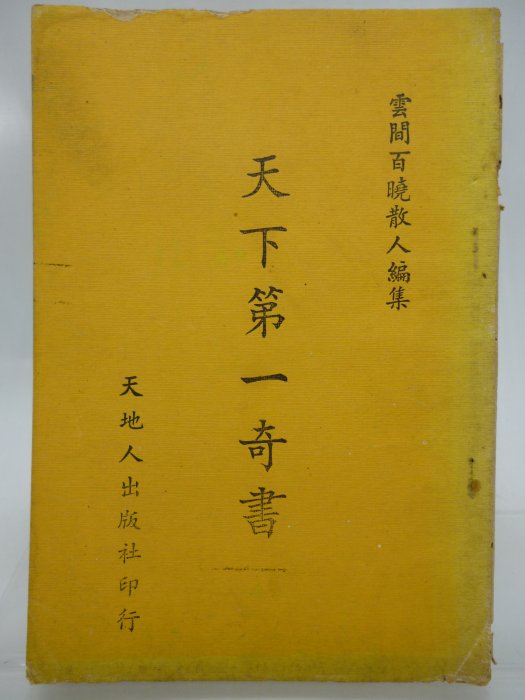 雲間百曉散人編集
天下第一奇書
天地人出版社印行